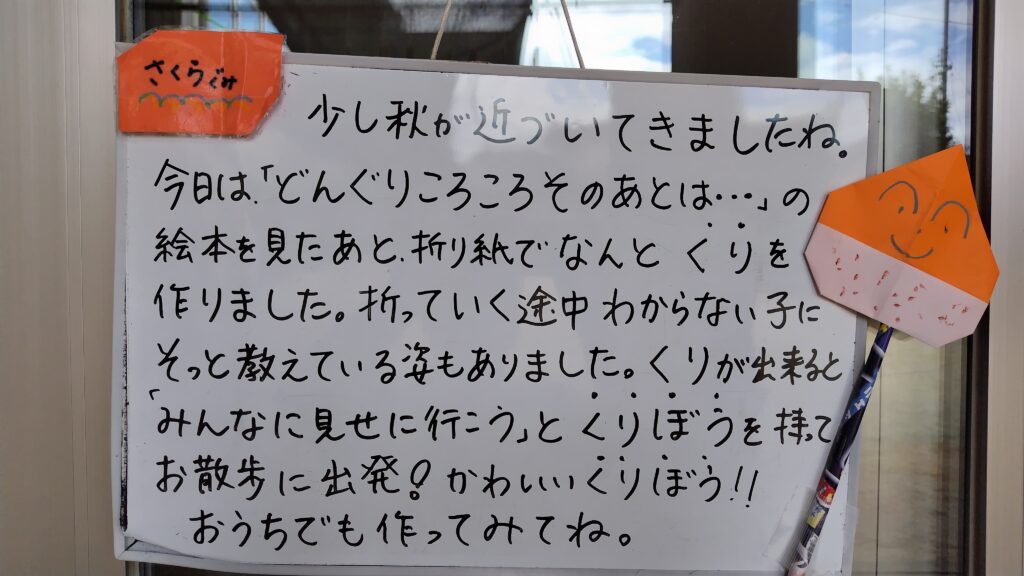 さくらぐみ
少し秋が近づいてきましたね。
今日は、「どんぐりころころそのあとは…」の
絵本を見たあと、折り紙でなんとくりを
作りました。折っていく途中わからない子に
そっと教えている姿もありました。くりが出来ると
「みんなに見せに行こう」とくりぼうを持って
お散歩に出発!かわいいくりぼう!!
おうちでも作ってみてね。